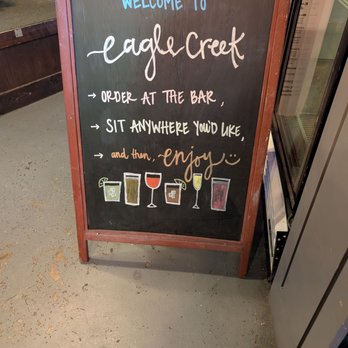 WELCOME TO
eagle Creek
→ ORDER AT THE BAR,
→ SIT ANYWHERE YOU'D LIKE,
→ and then, enjoy